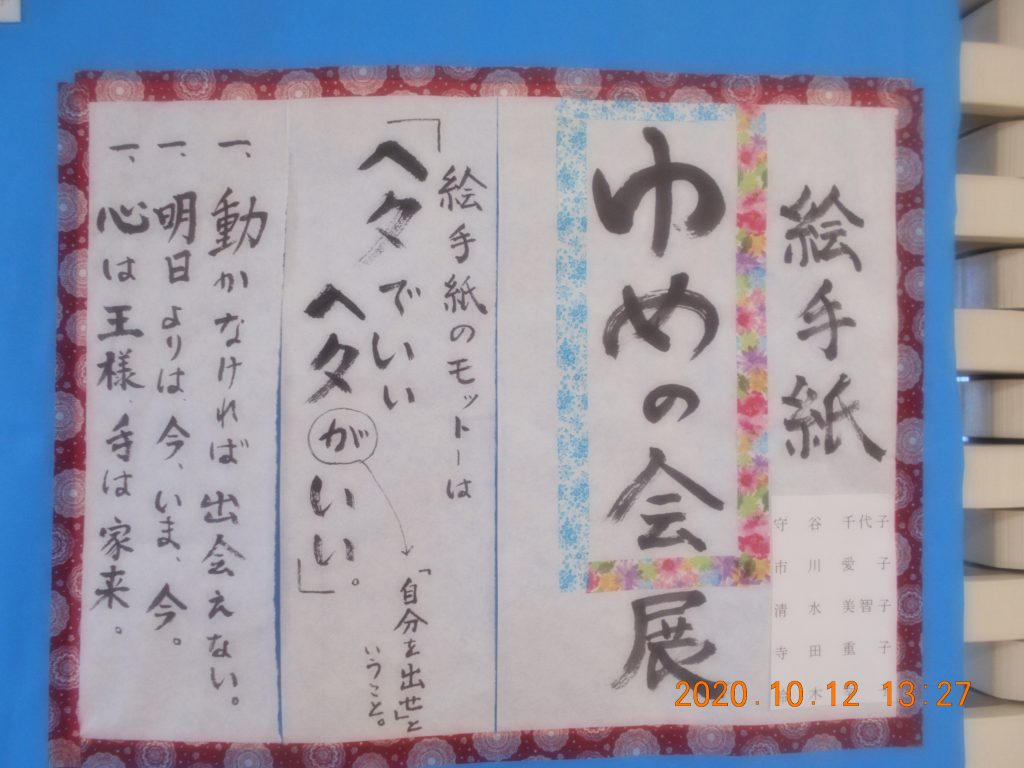 絵手紙
ゆめの会展
守谷千代子
市川愛子
清水美智子
寺田重子
絵手紙のモットーは
「ヘタでいい
ヘタがいい」。
「自分を出せ」と
いうこと。
一、動かなければ出会えない。
一、明日よりは、今、いま、今。
一、心は王様、手は家来。
2020.10.12 13:27